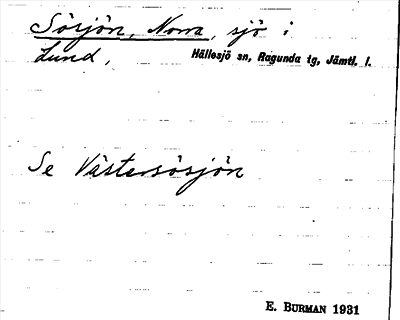 Sörjön, Norra, sjö i
Lund, Hällesjö sn, Ragunda tg, Jämtl. l.
Se Västersösjön
E. BURMAN 1931